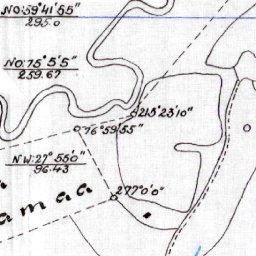 NO:59°41'55"
295.0
NO:75°5'5"
259.67
215°23'10"
76°59'55"
NW:27°55'0"
96.43
277°0'0"
amaa